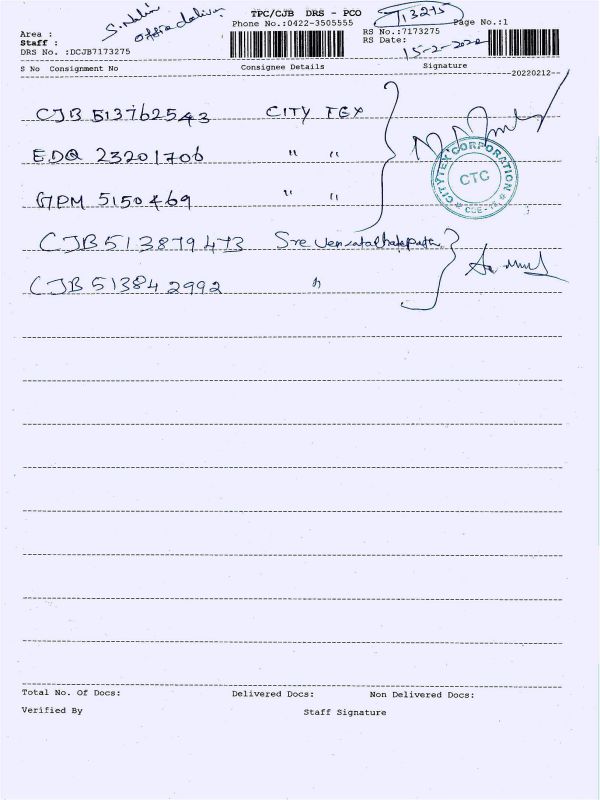 TPC/CJB DRS - PCO
Phone No.:0422-3505555
Page No.:1
Area :
Staff :
DRS No. :DCJB7173275
RS No.:7173275
RS Date:
15-2-2022
S No Consignment No Consignee Details Signature
--20220212--
CJB 513762543 CITY TEX
EDQ 23201706 " "
5150469 " "
CJB 513879473 Sre
CJB 513842992 "
CITYTEX CORPORATION
CTC
Total No. Of Docs: Delivered Docs: Non Delivered Docs:
Verified By Staff Signature